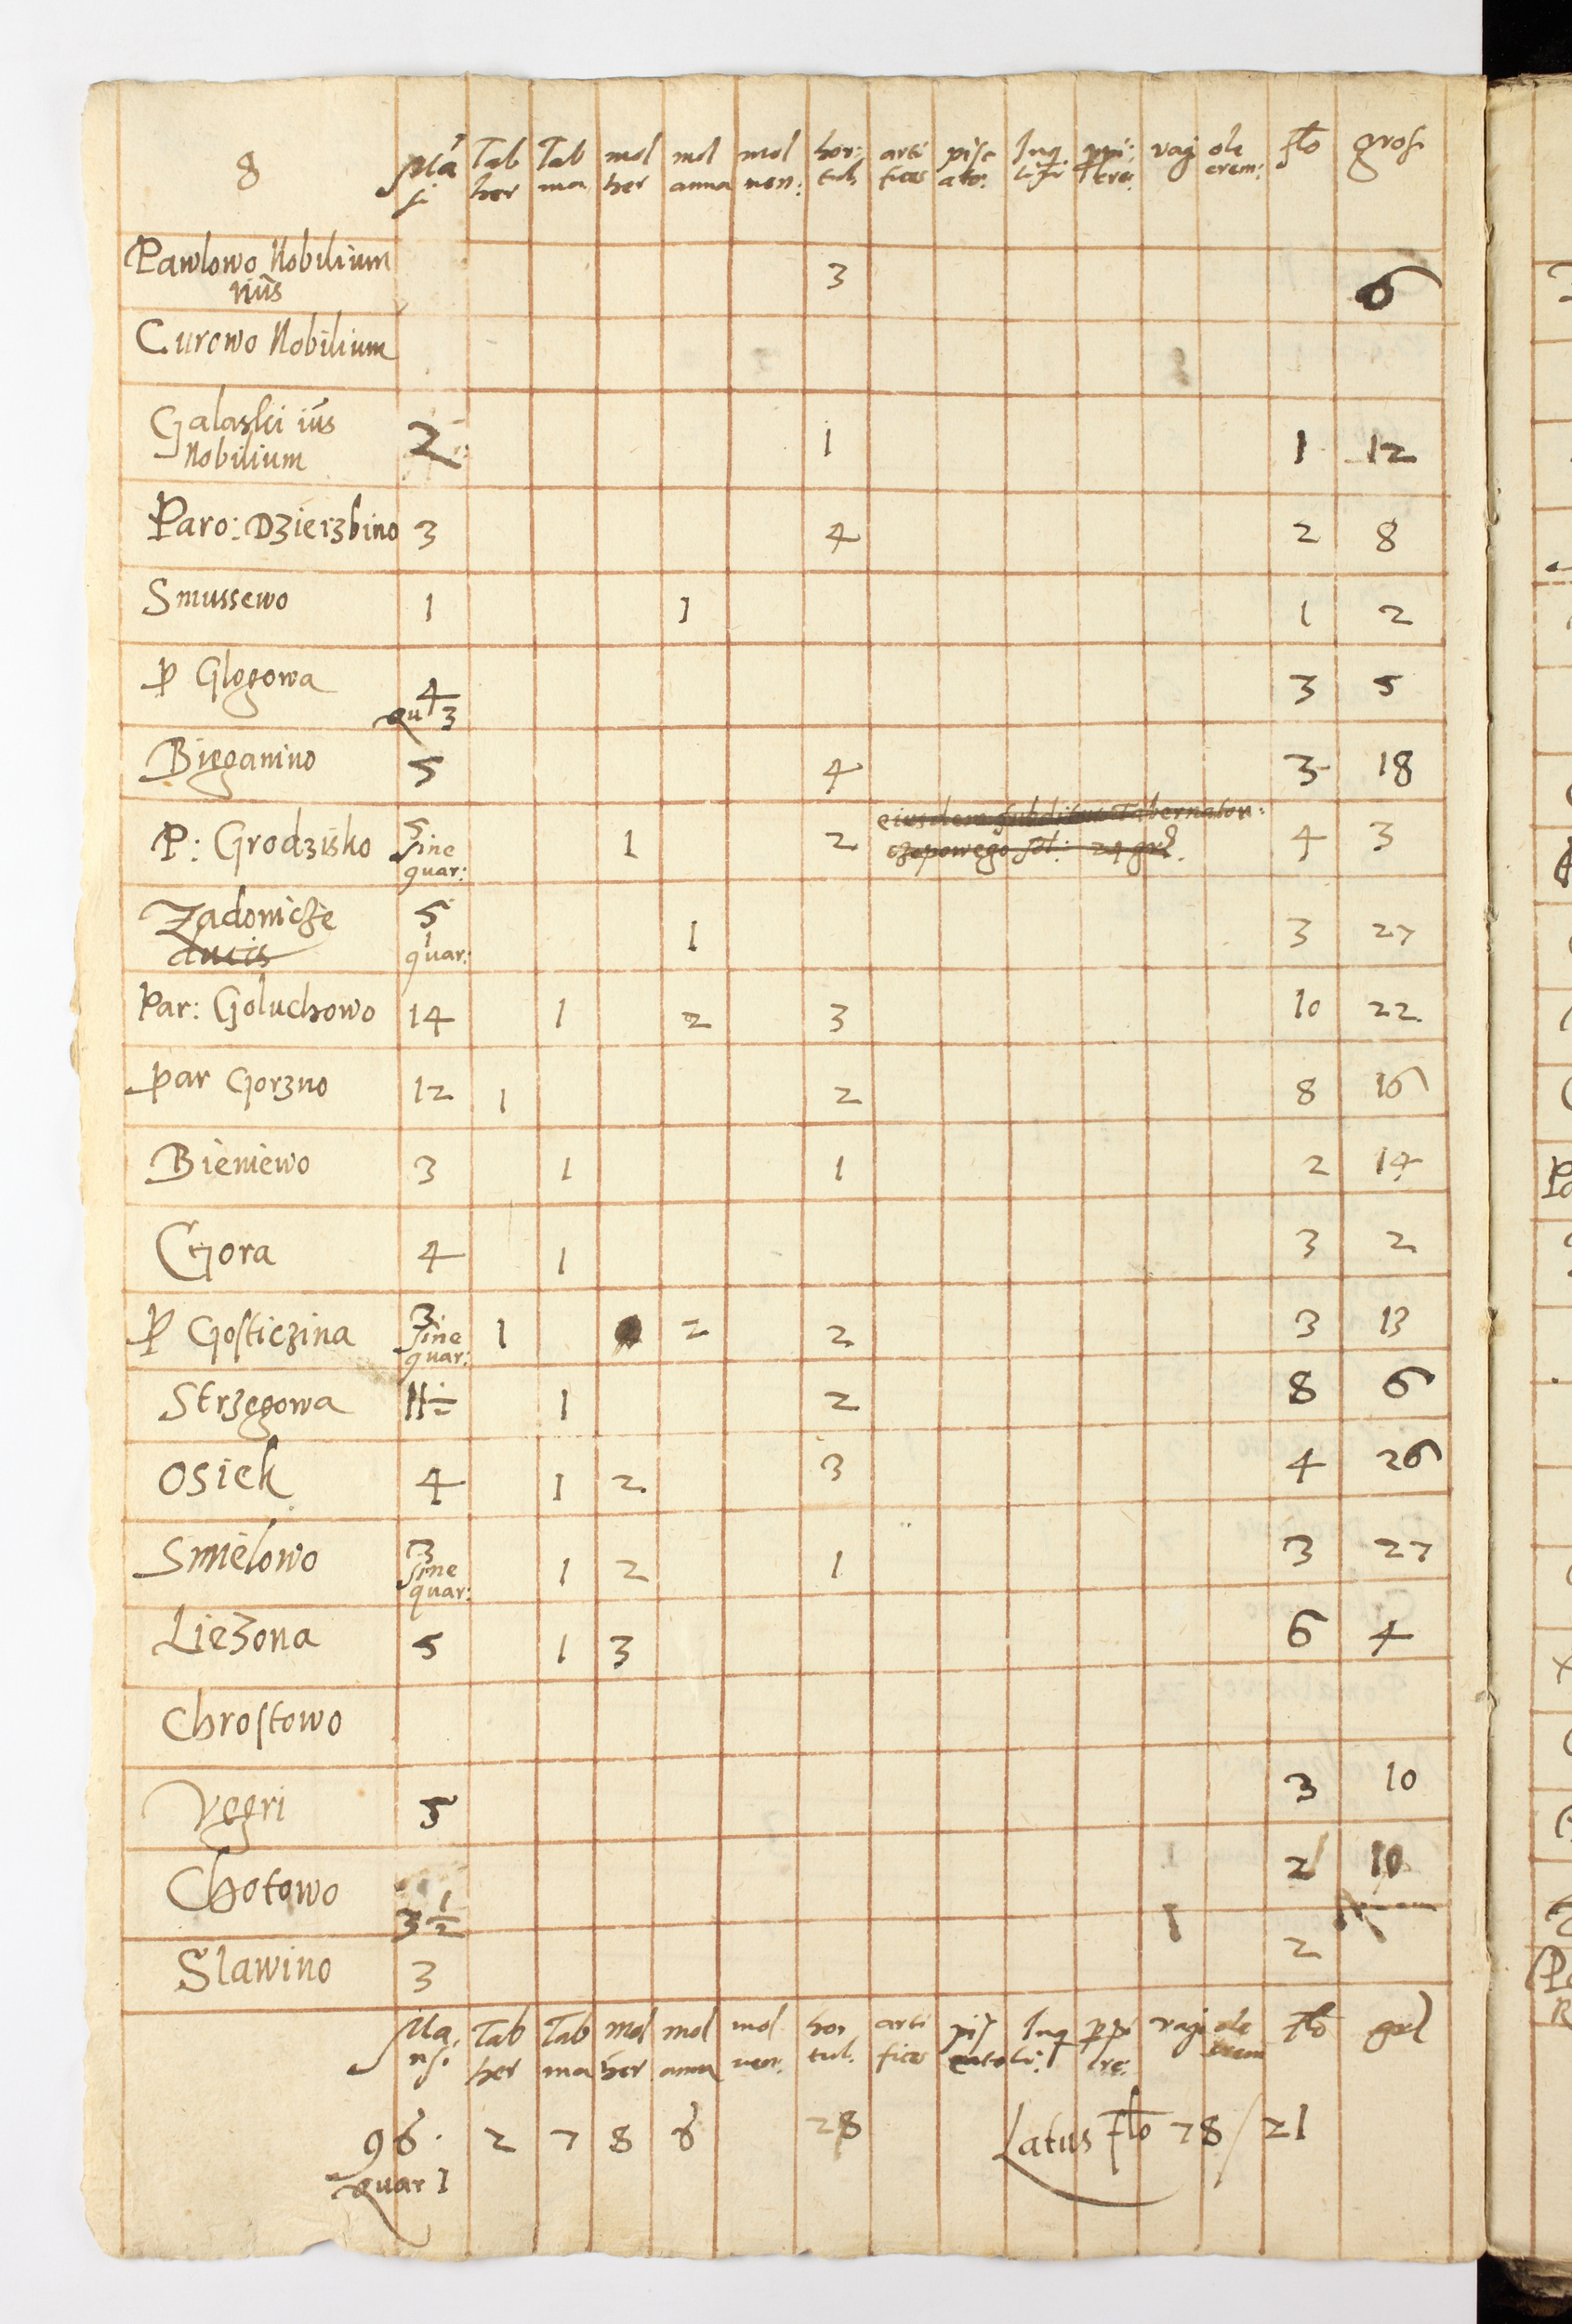 8 Ma Tab Tab mol mol mol hor: arti pisc Inq ppi: vagi ole flo gros
si her ma her annua ven: tul, fices ato: tre: crem:
Pawlowo Nobilium 3 6
nus
Curowo Nobilium
Galaski ius 2 1 1 12
Nobilium
Paro: Dzierzbino 3 4 2 8
Smussewo 1 1 1 2
P Glogowa 4 3 5
qu 3
Bieganino 5 4 3 18
P: Grodzisko 5 sine quar: 1 2 eiusdem subditus Tabernator: 4 3
czopowego sol: 24 gr
Zadonicze 5 1 3 27
ducis quar:
Par: Goluchowo 14 1 2 3 10 22
par Gorzno 12 1 2 8 16
Bieniewo 3 1 1 2 14
Gora 4 1 3 2
P Gosticzina 3 sine quar: 1 2 2 3 13
Strzegowa 11 1/2 1 2 8 6
Osiek 4 1 2 3 4 26
Smielowo 3 sine quar: 1 2 1 3 27
Liezona 5 1 3 6 4
Chrostowo
Vegri 5 3 10
Chotowo 3 1/2 1 2 10
Slawino 3 2
Ma Tab Tab mol mol mol hor arti pis Inq ppi vagi ole flo
nsi her ma her annu ven: tul. fices tre:
96. 2 7 8 6 28 Latus flo 78 / 21
quar 1